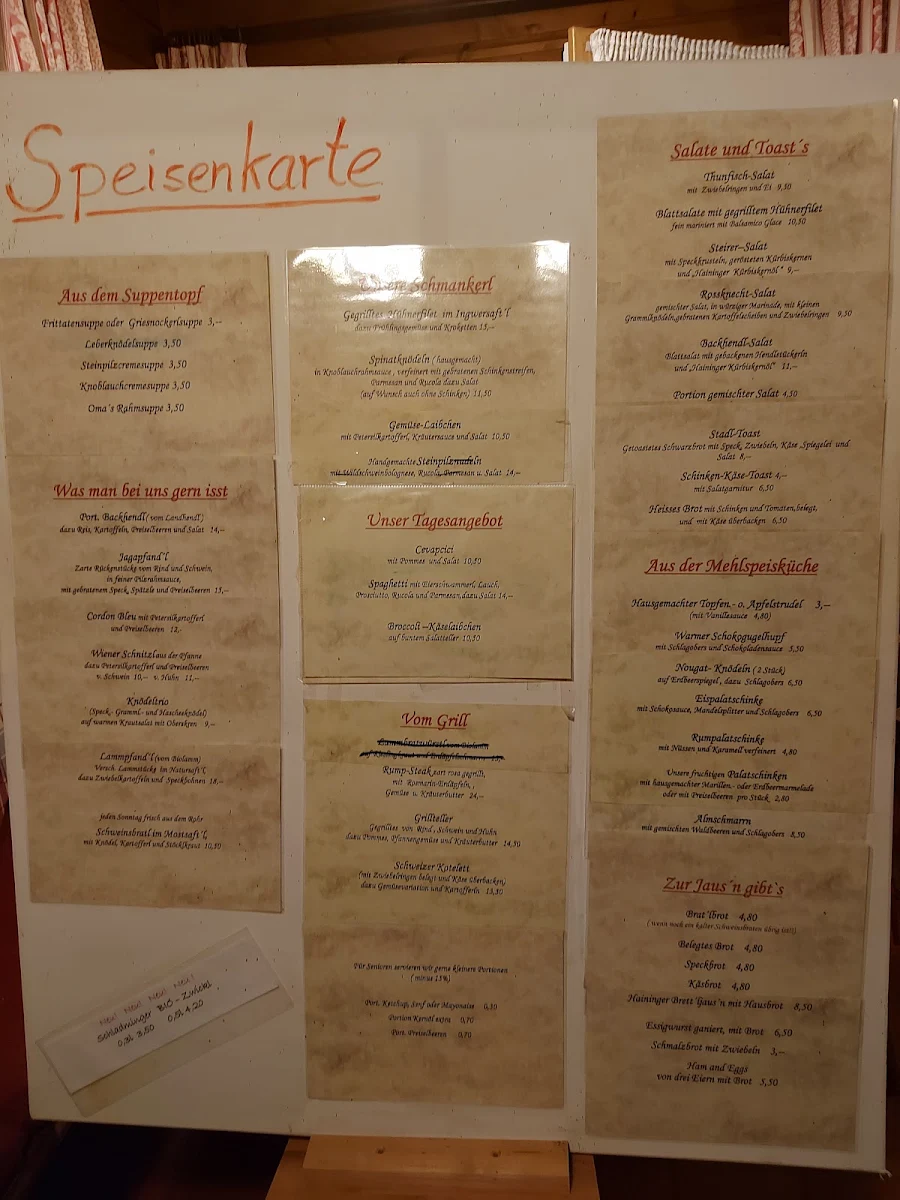 Speisenkarte
Aus dem Suppentopf
Frittatensuppe oder Griesnockerlsuppe 3,--
Leberknödelsuppe 3,50
Steinpilzcremesuppe 3,50
Knoblauchcremesuppe 3,50
Oma´s Rahmsuppe 3,50
Was man bei uns gern isst
Port. Backhendl (vom Landhendl)
dazu Reis, Kartoffeln, Preiselbeeren und Salat 14,--
Jagapfand´l
Zarte Rückenstücke vom Rind und Schwein,
in feiner Pilzrahmsauce,
mit gebratenem Speck, Spätzle und Preiselbeeren 15,--
Cordon Bleu mit Petersilkartofferl
und Preiselbeeren 12,-
Wiener Schnitzl aus der Pfanne
dazu Petersilkartofferl und Preiselbeeren
v. Schwein 10,-- v. Huhn 11,--
Knödeltrio
(Speck,- Gramml- und Hascheeknödel)
auf warmen Krautsalat mit Oberskren 9,--
Lammpfand´l (von Biolamm)
Versch. Lammstücke im Natursaft´l
dazu Zwiebelkartoffeln und Speckbohnen 18,--
jeden Sonntag frisch aus dem Rohr
Schweinsbratl im Mostsaft´l,
mit Knödel, Kartofferl und Stöcklkraut 10,50
Neu! Neu! Neu! Neu!
Schladminger BIO-Zwickl
0,3l 3,50 0,5l 4,20
Unsere Schmankerl
Gegrilltes Hühnerfilet im Ingwersaft´l
dazu Frühlingsgemüse und Kroketten 15,--
Spinatknödeln (hausgemacht)
in Knoblauchrahmsauce , verfeinert mit gebratenen Schinkenstreifen,
Parmesan und Rucola dazu Salat
(auf Wunsch auch ohne Schinken) 11,50
Gemüse-Laibchen
mit Petersilkartofferl, Kräutersauce und Salat 10,50
Handgemachte Steinpilznudeln
mit Wildschweinbolognese, Rucola, Parmesan u. Salat 14,--
Unser Tagesangebot
Cevapcici
mit Pommes und Salat 10,50
Spaghetti mit Eierschwammerl, Lauch,
Prosciutto, Rucola und Parmesan, dazu Salat 14,--
Broccoli –Käselaibchen
auf buntem Salatteller 10,50
Vom Grill
Rump-Steak zart rosa gegrillt,
mit Rosmarin-Erdäpfeln, ,
Gemüse u. Kräuterbutter 24,--
Grillteller
Gegrilltes von Rind , Schwein und Huhn
dazu Pommes, Pfannengemüse und Kräuterbutter 14,50
Schweizer Kotelett
(mit Zwiebelringen belegt und Käse überbacken)
dazu Gemüsevariation und Kartofferln 13,50
Für Senioren servieren wir gerne kleinere Portionen
( minus 15%)
Port. Ketchup, Senf oder Mayonaise 0,30
Portion Kernöl extra 0,70
Port. Preiselbeeren 0,70
Salate und Toast´s
Thunfisch-Salat
mit Zwiebelringen und Ei 9,50
Blattsalate mit gegrilltem Hühnerfilet
fein mariniert mit Balsamico Glace 10,50
Steirer–Salat
mit Speckkrusteln, gerösteten Kürbiskernen
und „Haininger Kürbiskernöl" 9,--
Rossknecht-Salat
gemischter Salat, in würziger Marinade, mit kleinen
Grammlknödeln,gebratenen Kartoffelscheiben und Zwiebelringen 9,50
Backhendl-Salat
Blattsalat mit gebackenen Hendlstückerln
und „Haininger Kürbiskernöl" 11,--
Portion gemischter Salat 4,50
Stadl-Toast
Getoastetes Schwarzbrot mit Speck, Zwiebeln, Käse ,Spiegelei und
Salat 8,--
Schinken-Käse-Toast 4,--
mit Salatgarnitur 6,50
Heisses Brot mit Schinken und Tomaten,belegt,
und mit Käse überbacken 6,50
Aus der Mehlspeisküche
Hausgemachter Topfen,- o. Apfelstrudel 3,--
(mit Vanillesauce 4,80)
Warmer Schokogugelhupf
mit Schlagobers und Schokoladensauce 5,50
Nougat- Knödeln ( 2 Stück)
auf Erdbeerspiegel , dazu Schlagobers 6,50
Eispalatschinke
mit Schokosauce, Mandelsplitter und Schlagobers 6,50
Rumpalatschinke
mit Nüssen und Karamell verfeinert 4,80
Unsere fruchtigen Palatschinken
mit hausgemachter Marillen,- oder Erdbeermarmelade
oder mit Preiselbeeren pro Stück 2,80
Almschmarrn
mit gemischten Waldbeeren und Schlagobers 8,50
Zur Jaus´n gibt´s
Brat´lbrot 4,80
( wenn noch ein kalter Schweinsbraten übrig ist!!)
Belegtes Brot 4,80
Speckbrot 4,80
Käsbrot 4,80
Haininger Brett´ljaus´n mit Hausbrot 8,50
Essigwurst ganiert, mit Brot 6,50
Schmalzbrot mit Zwiebeln 3,--
Ham and Eggs
von drei Eiern mit Brot 5,50